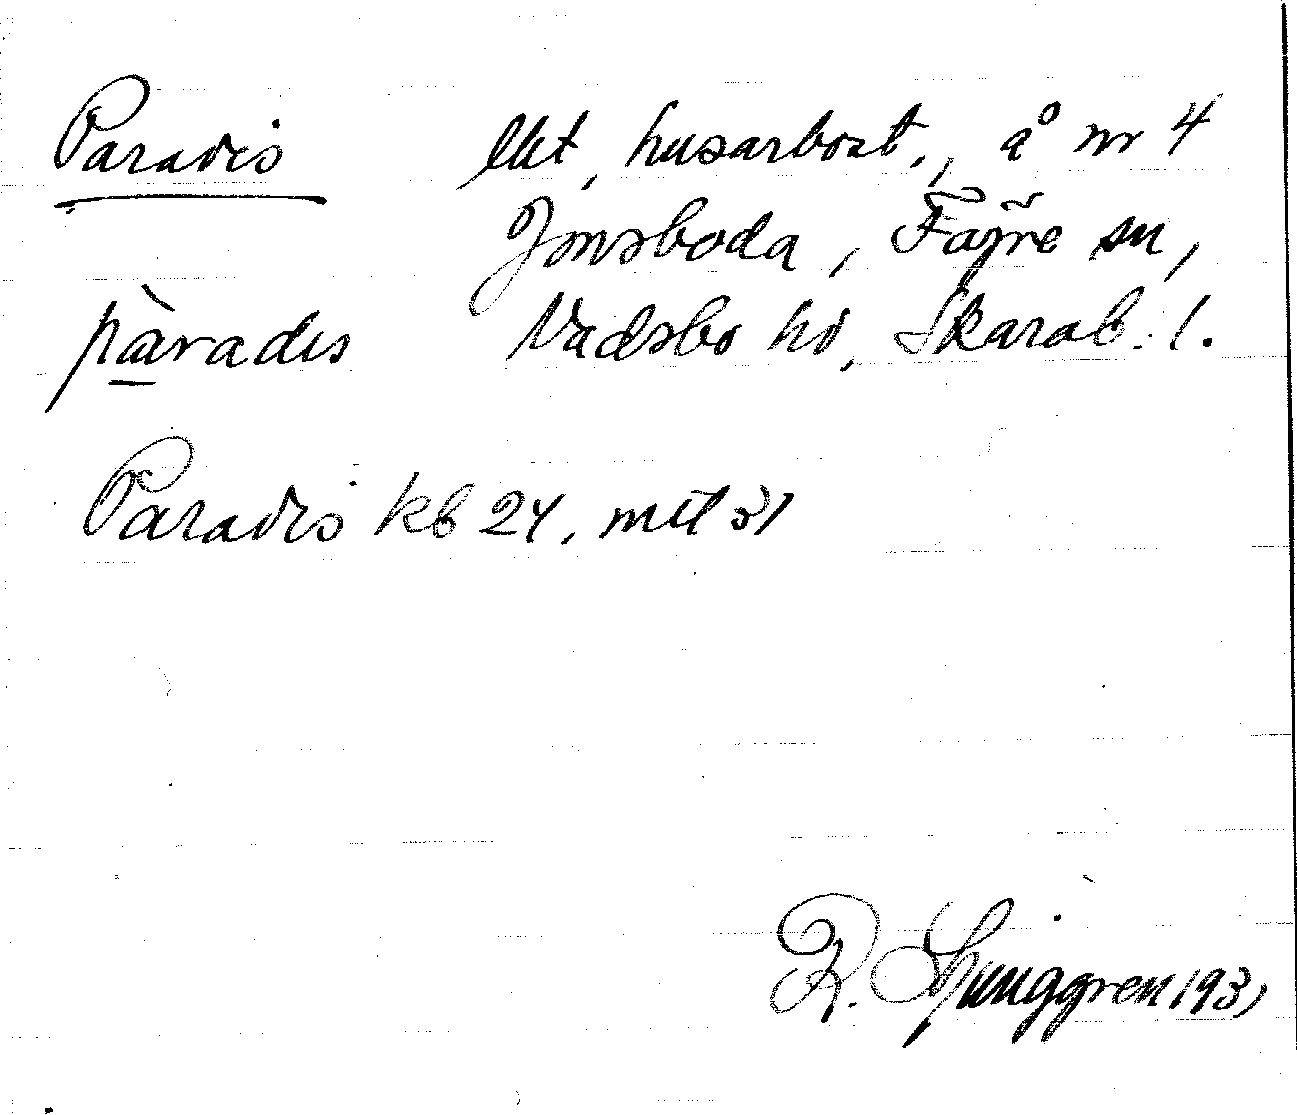 Paradis lht, husarbost., å nr 4
Jonsboda, Fägre sn,
pàradis Vadsbo hd, Skarab. l.
Paradis kb 24, mtl 31
R. Ljunggren 1931